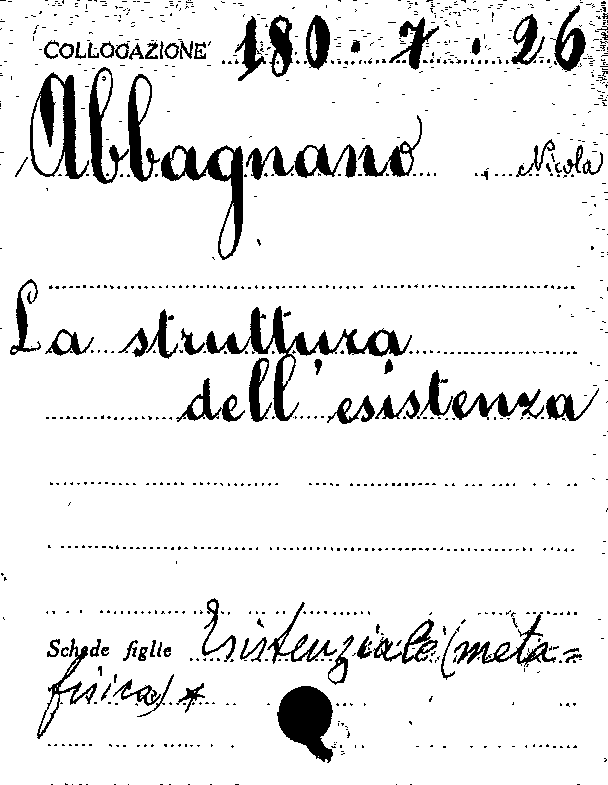 COLLOCAZIONE 180.7.26
Abbagnano, Nicola
La struttura
dell'esistenza
Schede figlie Esistenziale (meta=
fisica) *